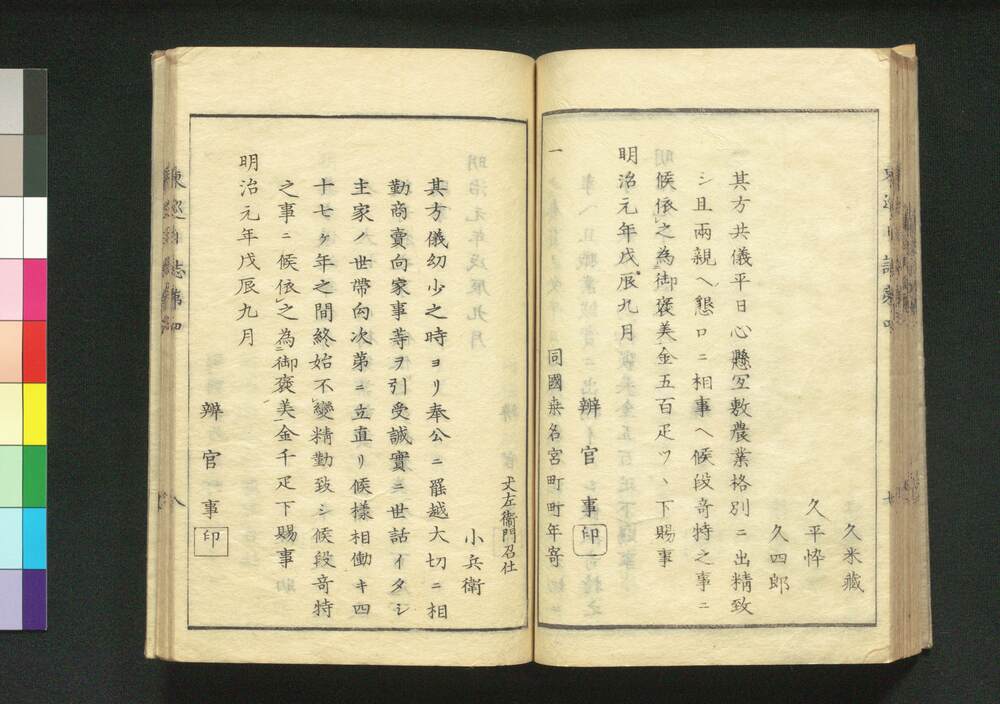 久米藏
久平忰
久四郎
其方共儀平日心懸宜敷農業格別ニ出精致
シ且兩親ヘ懇ロニ相事ヘ候段竒特之事ニ
候依之為御褒美金五百疋ツヽ下賜事
明治元年戊辰九月
辨官事印
一
同國桒名宮町町年寄
丈左衞門召仕
小兵衛
其方儀幼少之時ヨリ奉公ニ罷越大切ニ相
勤商賣向家事等ヲ引受誠實ニ世話イタシ
主家ノ世帶向次第ニ立直リ候樣相働キ四
十七ヶ年之間終始不變精勤致シ候段竒特
之事ニ候依之為御褒美金千疋下賜事
明治元年戊辰九月
辨官事印